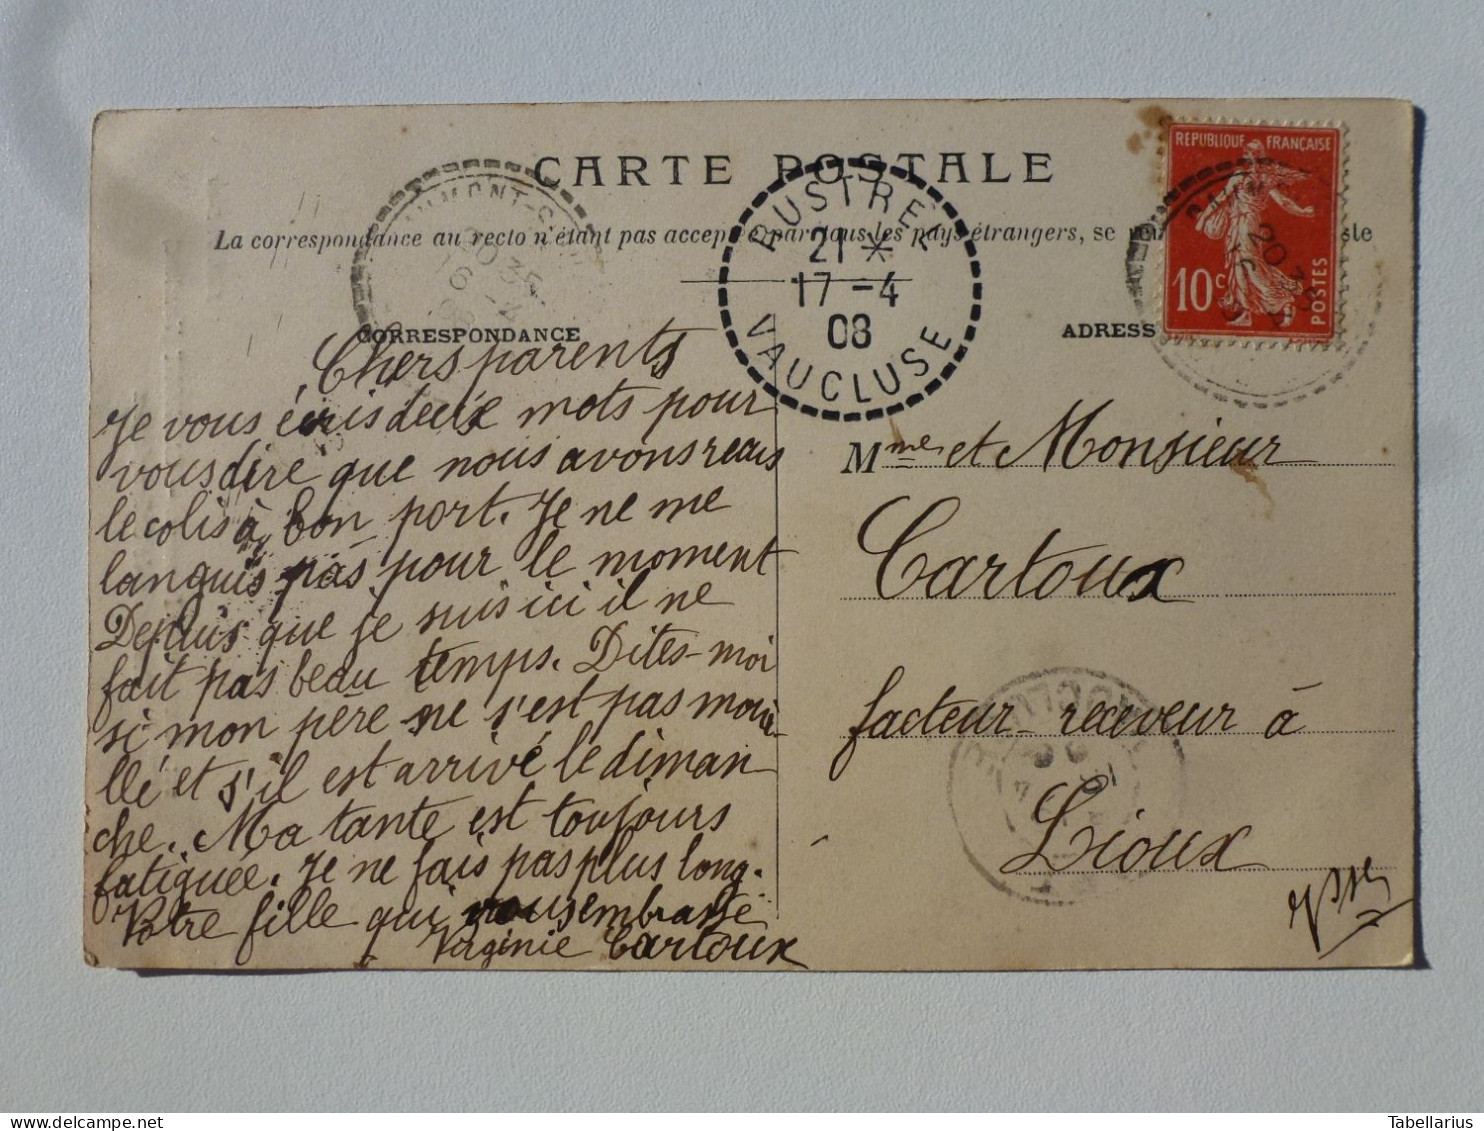 CARTE POSTALE
La correspondance au recto n'étant pas acceptée par tous les pays étrangers, se
RUSTREL
21 *
17 - 4
08
VAUCLUSE
REPUBLIQUE FRANÇAISE
10c
POSTES
CORRESPONDANCE
ADRESS
Chers parents
Je vous écris deux mots pour
vous dire que nous avons reçus
le colis à bon port. Je ne me
languis pas pour le moment
Depuis que je suis ici il ne
fait pas beau temps. Dites-moi
si mon père ne s'est pas moui-
llé et s'il est arrivé le diman
che. Ma tante est toujours
fatiguée. Je ne fais pas plus long.
Votre fille qui vous embrasse
Virginie Cartoux
Mme et Monsieur
Cartoux
facteur-receveur à
Lioux
Tabellarius